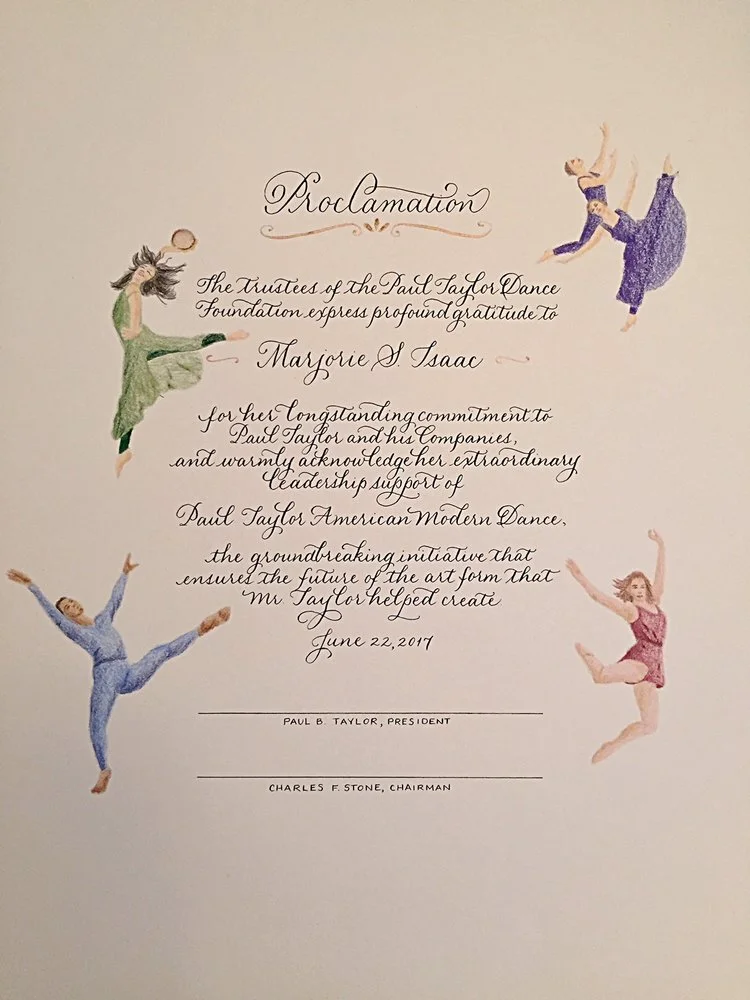 Proclamation
The trustees of the Paul Taylor Dance
Foundation express profound gratitude to
Marjorie S. Isaac
for her longstanding commitment to
Paul Taylor and his Companies,
and warmly acknowledge her extraordinary
leadership support of
Paul Taylor American Modern Dance,
the groundbreaking initiative that
ensures the future of the art form that
Mr. Taylor helped create.
June 22, 2017
PAUL B. TAYLOR, PRESIDENT
CHARLES F. STONE, CHAIRMAN